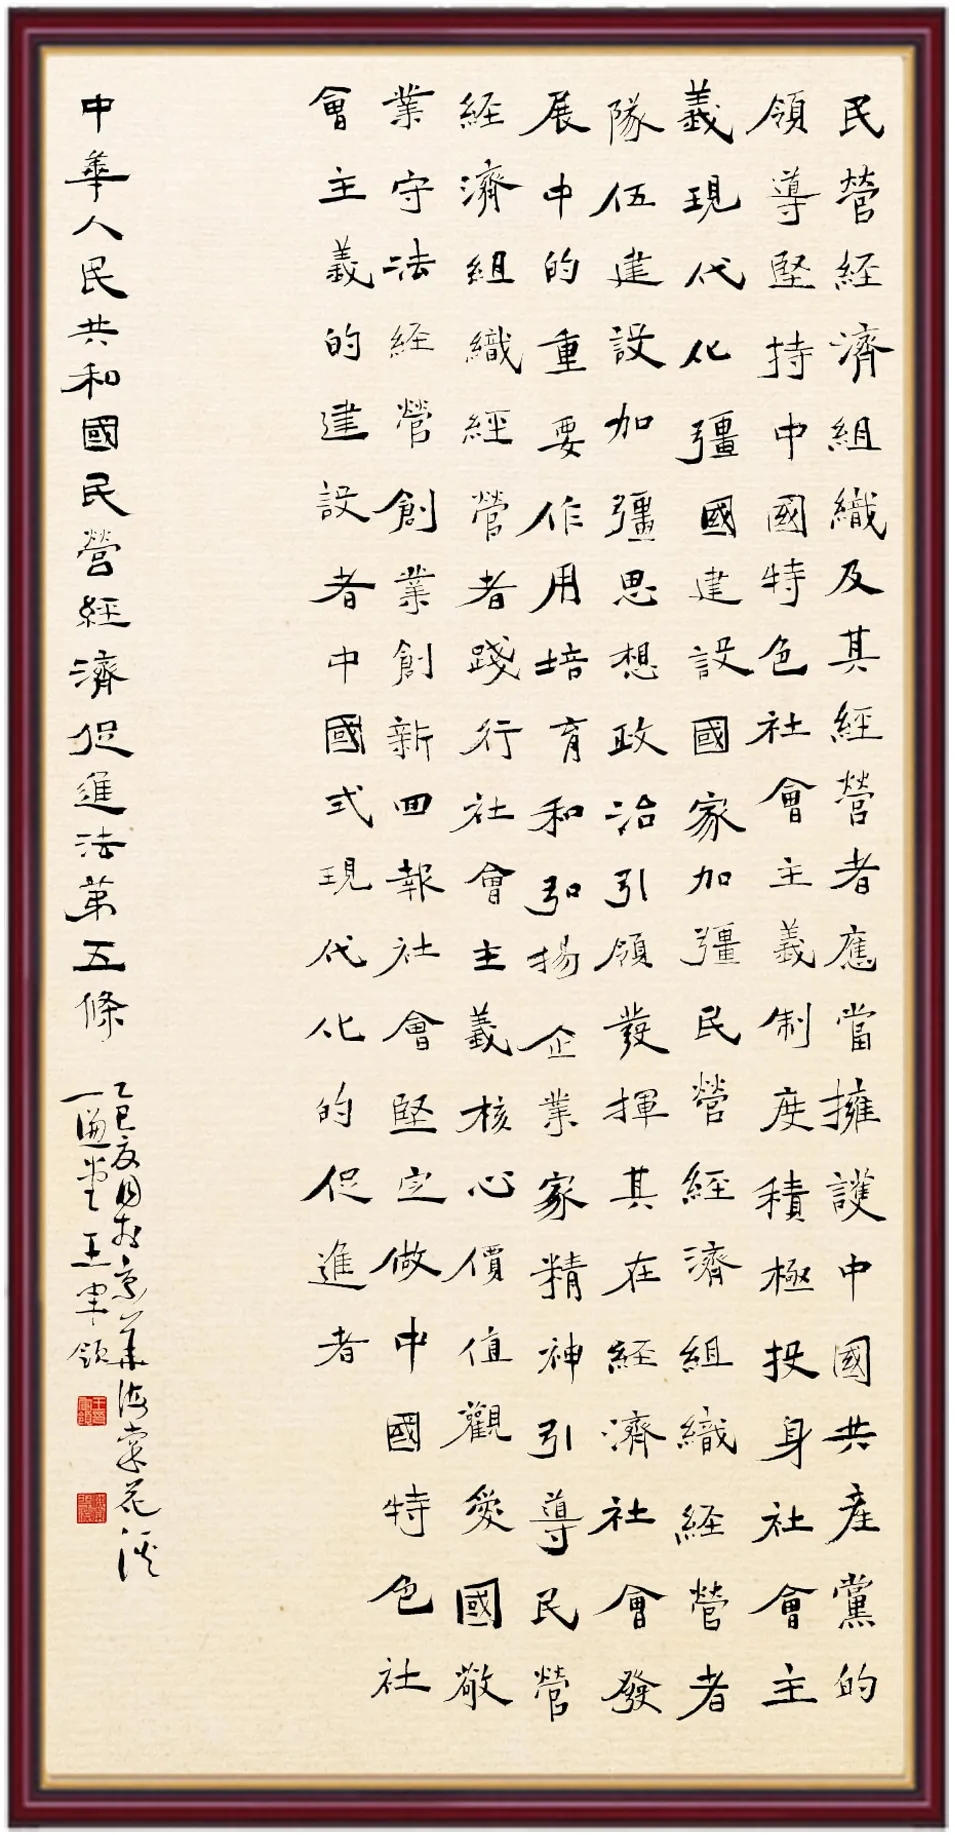 民營経濟組織及其経營者應當擁護中國共產黨的
領導堅持中國特色社會主義制度積極投身社會主
義現代化彊國建設國家加彊民營經濟組織経營者
隊伍建設加彊思想政治引領發揮其在経濟社會發
展中的重要作用培育和弘揚企業家精神引導民營
経濟組織經營者踐行社會主義核心價值觀愛國敬
業守法経營創業創新回報社會堅定做中國特色社
會主義的建設者中國式現代化的促進者
中華人民共和國民營経濟促進法第五條
乙巳夏月於京華海棠花溪
一堂王軍領